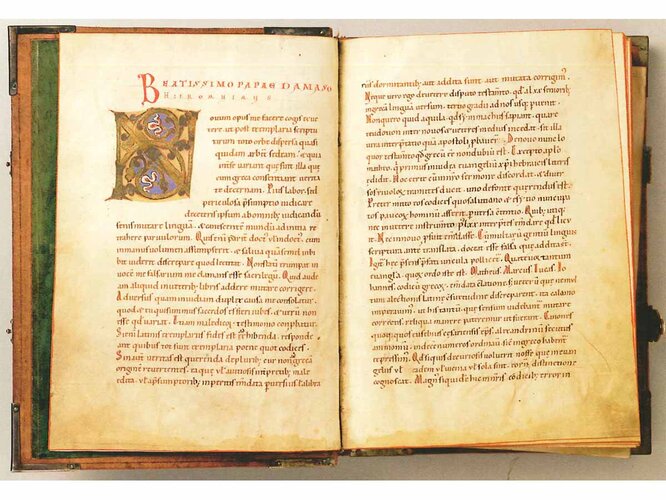 BEATISSIMO PAPAE DAMASO
HIERONIMVS
NOVUM
ouum opus me facere cogis ex ue
tere ut post exemplaria scriptu
rarum toto orbe dispersa quasi
quidam arbiter sedeam. & quia
inter se uariant que sint illa que
cum greca consentiant uerita
te decernam. Pius labor. sed
periculosa p̄sumptio iudicare
de ceteris ipsum ab omnibꝫ iudicandū
senis mutare linguam. & canescentē mundū ad initia re
trahere paruulorum. Quis enī
in manus uolumen assumpserit. & a saliua quam semel inbi
bit uiderit discrepare quod lectitat. Non statim erumpat in
uocē me falsarium me clamans esse sacrilegū. Qui audeā
am aliquid in ueteribꝫ libris addere mutare corrigere.
Aduersus quam inuidiam duplex causa me consolatur.
quod & tu qui summus sacerdos es fieri iubes. & uerū non
esse qd̄ uariat. Etiam maledicoꝝ testimonio conprobatur.
Si enī latinis exemplaribꝫ fides est adhibenda. responde
ant quibus tot sunt exemplaria pene quot codices.
Sin autē ueritas est querenda de pluribꝫ cur non ad greca
originē reuertentes. ea que ul̄ a uitiosis interpretibꝫ male
edita. ul̄ a p̄sumptoribꝫ inperitis emdata peruersius ul̄ a libra
riis dormitantibꝫ aut addita sunt aut mutata corrigimꝰ.
Neque uero ego de ueteri disputo testamto. qd̄ a lxx seniorib
in grecā lingua uersum. tertio gradu ad nos usqꝫ puenit.
Non quero quid aquila. quid symmachus sapiant. quare
teodotion inter nouos & ueteres medius incedat. Sit illa
uera interptatio quā apostoli p̄bauerꝰ. De nouo nunc lo
quor testamto. qd̄ grecū eē non dubiū est. Excepto aplo
matheo. qui primus in iudea euangeliū xp̄i hebraicis litteris
edidit. Hoc certe cū in nr̄o sermone discordat. & diuer
sos riuuloꝝ tramites ducit. uno de fonte querendū est.
Preter mitto eos codices quos a luciano & esytio nuncupa
tos paucoꝝ hominū asserit puersa cōtentio. Quibꝫ utique
nec in ueteri instrumto p̄ꝰ lxx interpretes emdare qd̄ lice
it. Nec in nouo p̄fuit emdasse. Cum multarū gentiū linguis
scriptura ante translata. doceat esse falsa que addita sꝰ.
Igit̄ hec p̄sens p̄fatiuncula pollicetꝰ. Quatuor tantum
euanglia. quoꝝ ordo est iste. Matheus. Marcus. Lucas. Io
hannes. codicū grecoꝝ. emdata collatione. sꝫ ueterū que ne mul
tum a lectionis latinę consuetudine discreparent. ita calamo
imperauimꝰ. ut his tantū que sensum uidebant mutare
correctis. reliqua manere pateremur ut fuerant. Canones
quoqꝫ quos eusebius cesariensis ep̄s. alexandrinū secutus
ammoniū. in decem numeros ordinauit sicut in greco habent
expressimꝰ. Qd̄ si quis de curiosis uoluerit nosse que in euan
geliis ul̄ eadem ul̄ uicina ul̄ sola sunt. eorū distinctione
cognoscat. Magnꝰ siquidē hic in nr̄is codicibꝫ error in